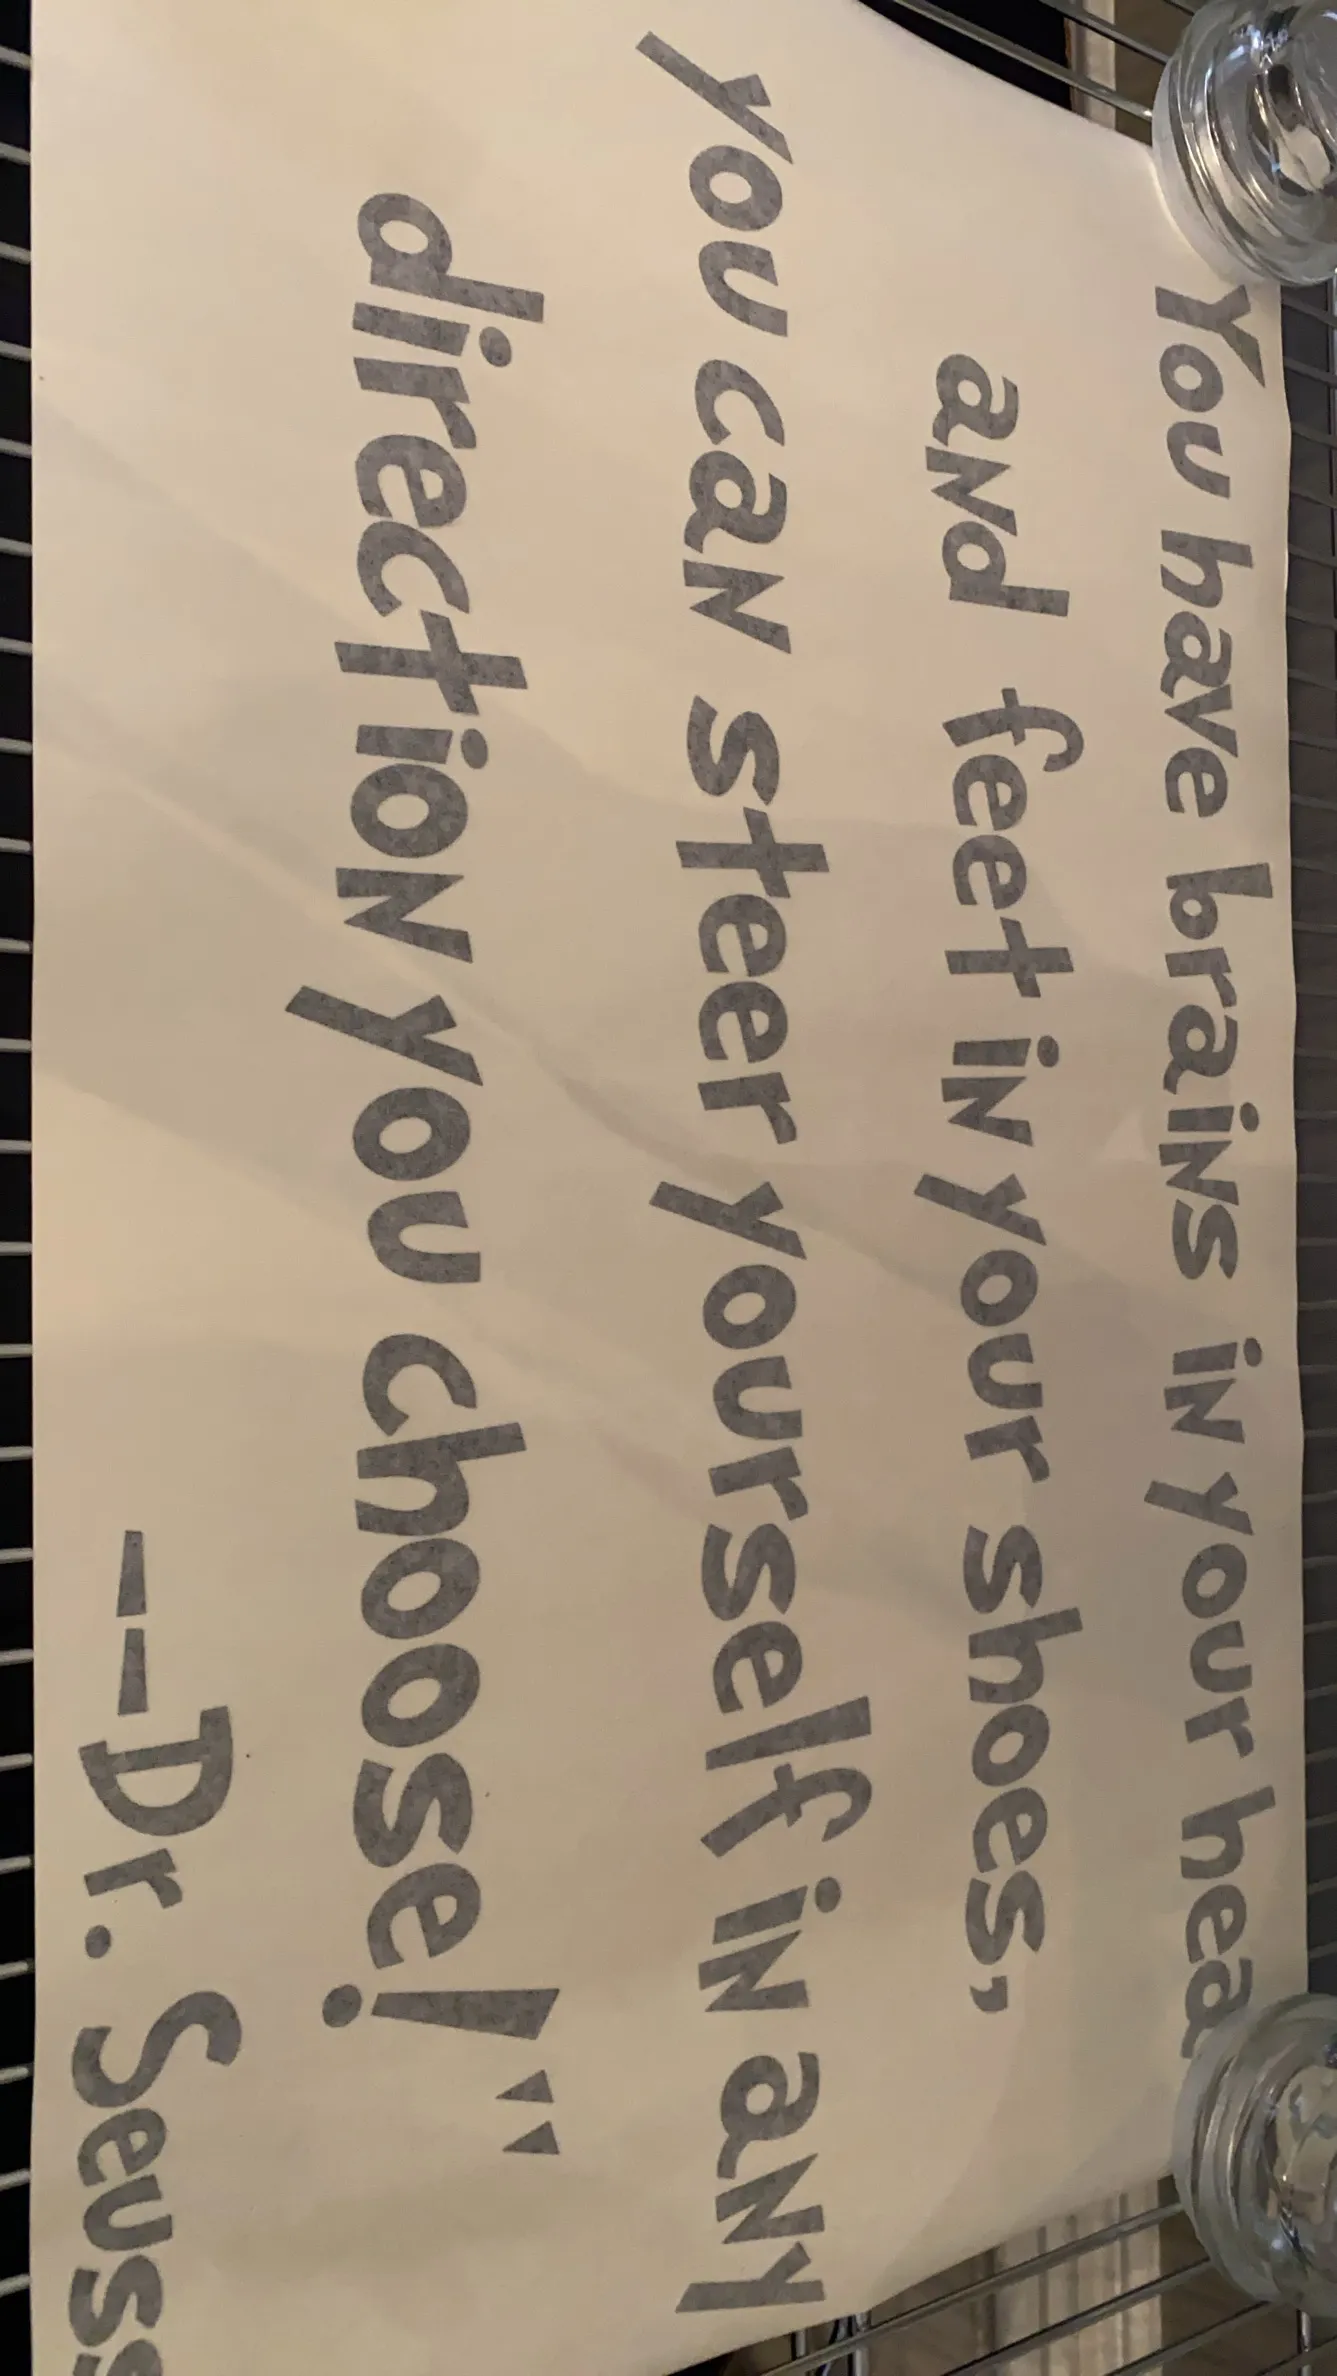 You have brains in your hea
and feet in your shoes,
you can steer yourself in any
direction you choose!"
--Dr. Seuss